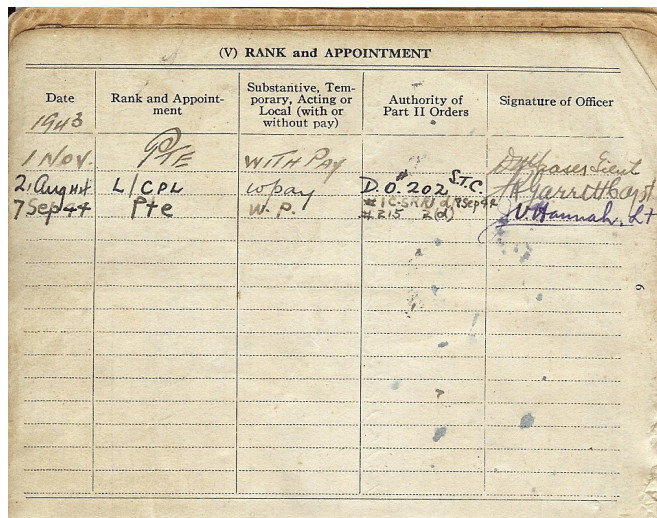 (V) RANK and APPOINTMENT
Date
Rank and Appoint-
ment
Substantive, Tem-
porary, Acting or
Local (with or
without pay)
Authority of
Part II Orders
Signature of Officer
1943
1 NOV. PTE WITH PAY Lieut
21 Aug 44 L/CPL w pay D.O. #202 S.T.C. Garrett Capt
7 Sep 44 Pte W.P. 7 Sep 44 Hannah, Lt
#215 2(d)
9